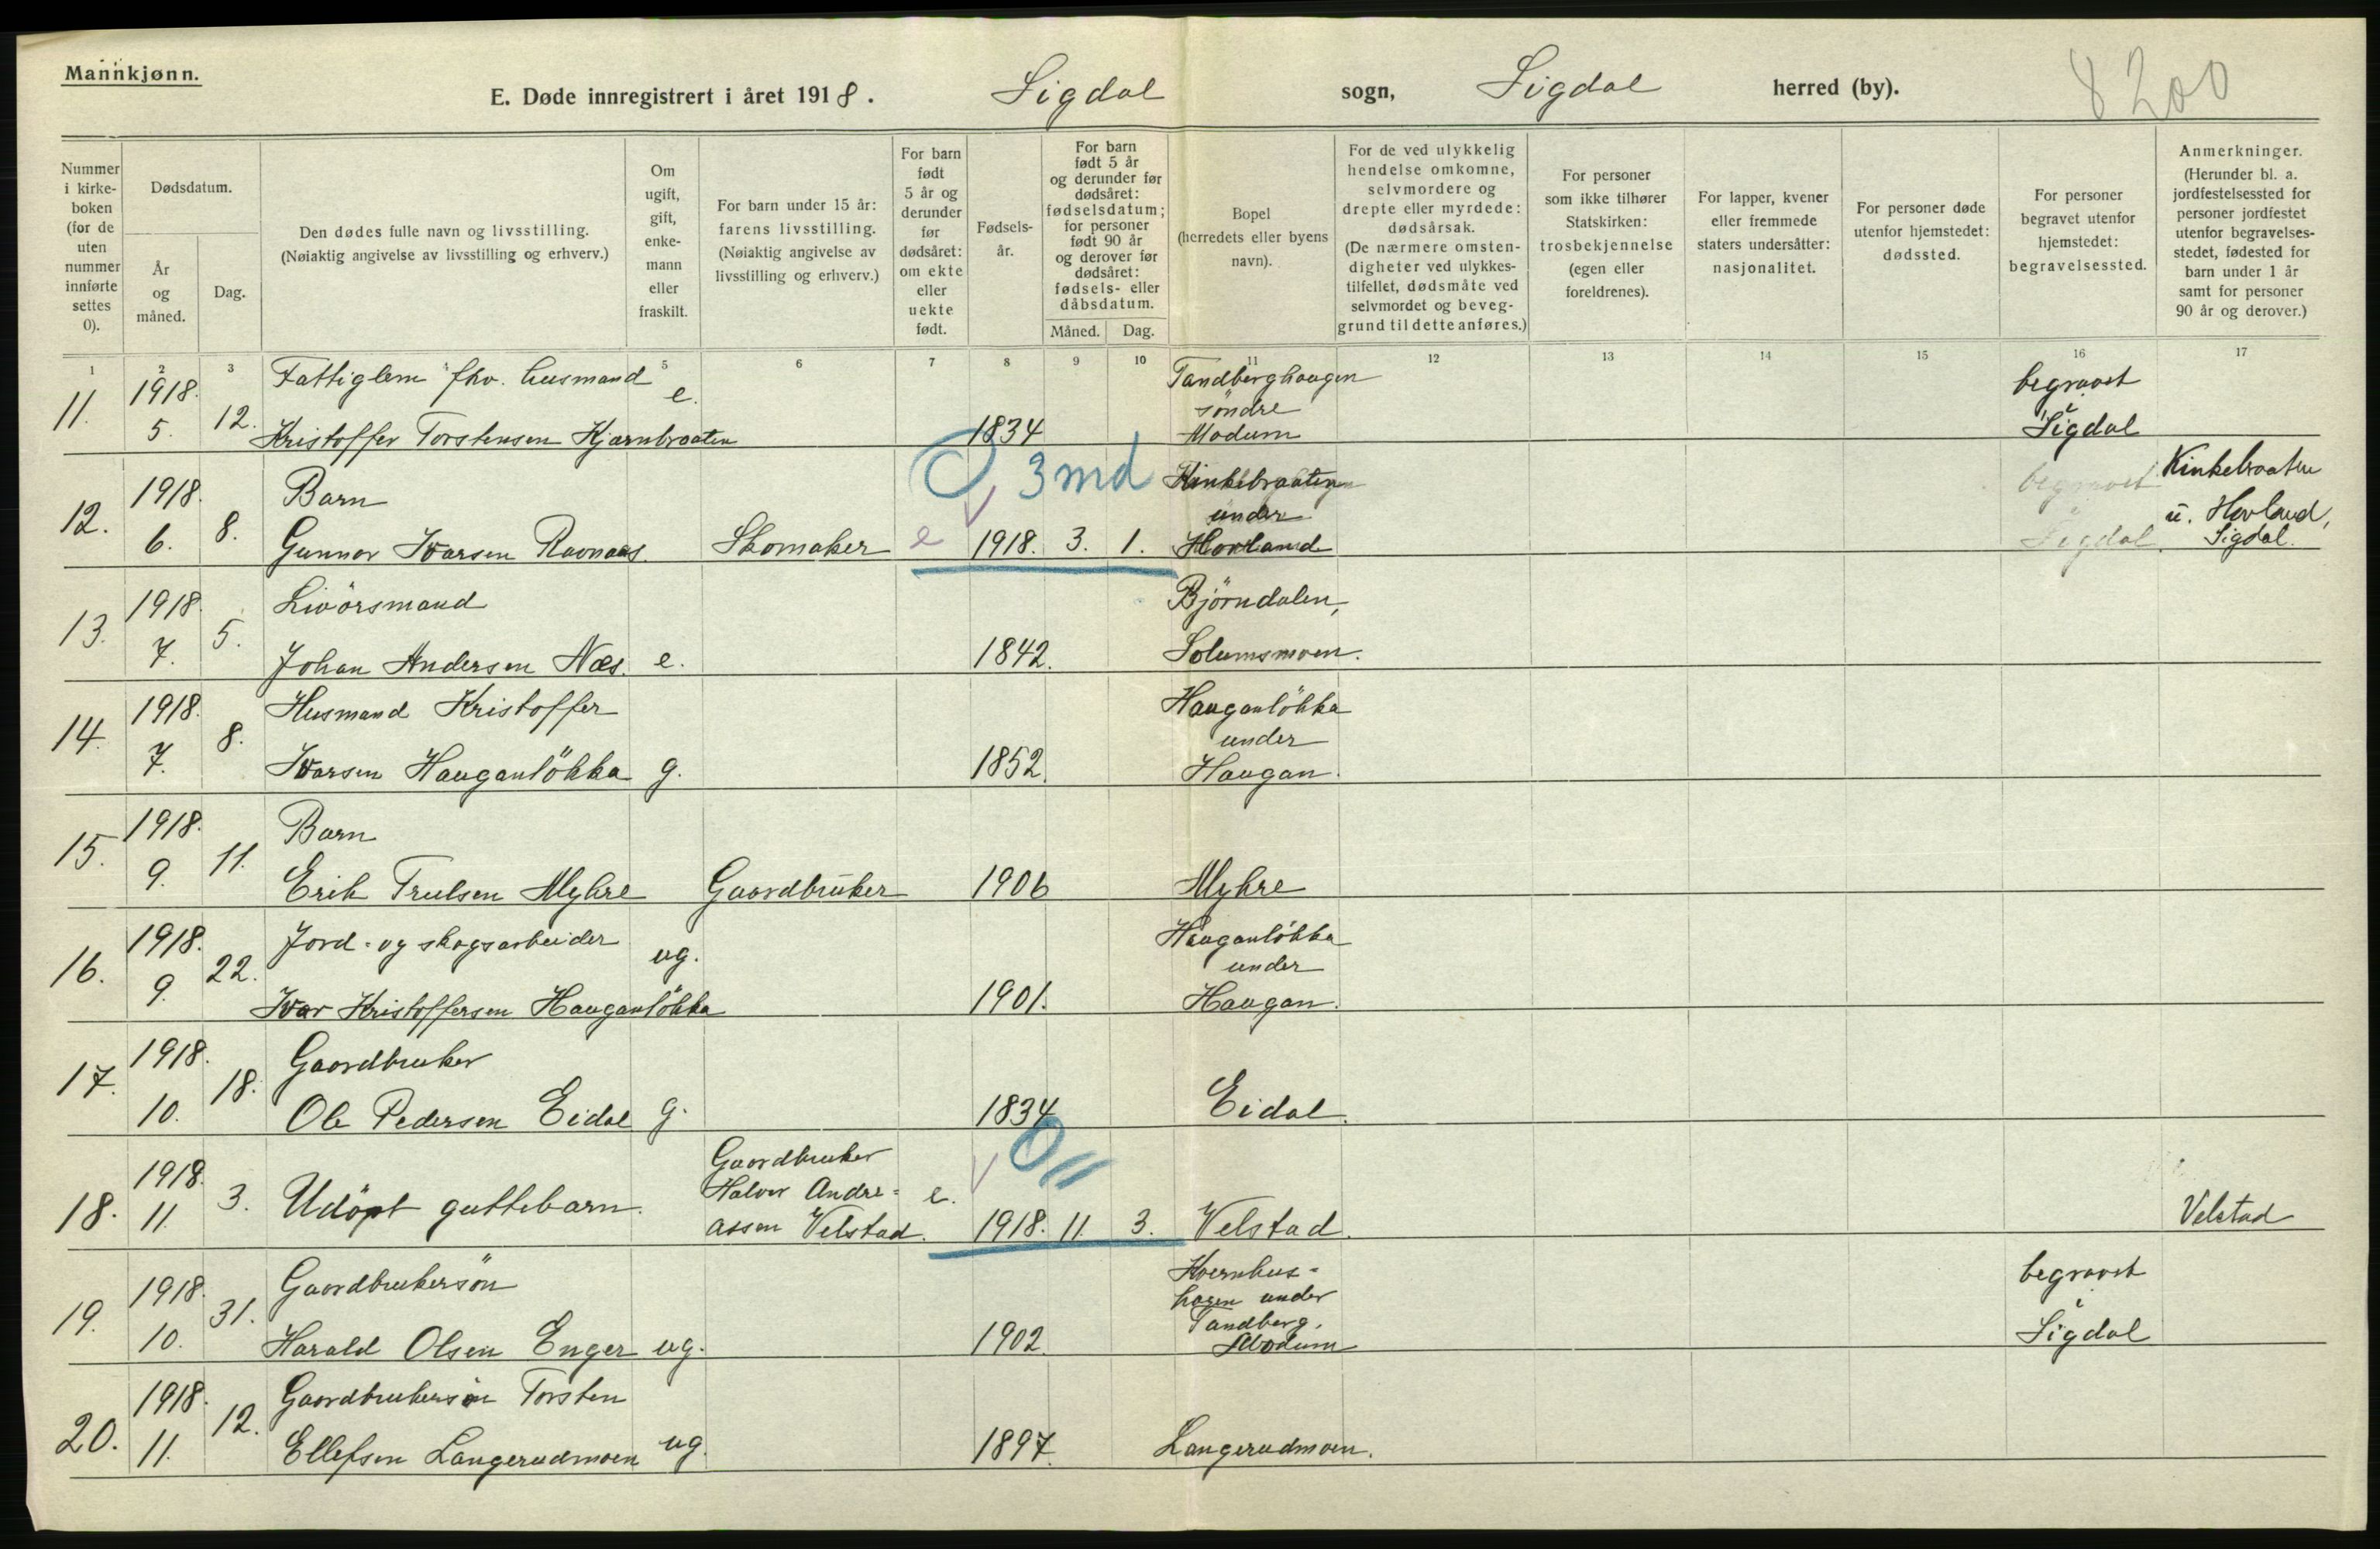 Mannkjønn.
E. Døde innregistrert i året 1918. Sigdal sogn, Sigdal herred (by). 8200
Nummer i kirke- boken (for de uten nummer innførte settes 0).
Dødsdatum.
År og måned.
Dag.
Den dødes fulle navn og livsstilling.
(Nøiaktig angivelse av livsstilling og erhverv.)
Om ugift, gift, enke- mann eller fraskilt.
For barn under 15 år: farens livsstilling.
(Nøiaktig angivelse av livsstilling og erhverv.)
For barn født 5 år og derunder før dødsåret: om ekte eller uekte født.
Fødsels- år.
For barn født 5 år og derunder før dødsåret: fødselsdatum; for personer født 90 år og derover før dødsåret: fødsels- eller dåbsdatum.
Måned. Dag.
Bopel (herredets eller byens navn).
For de ved ulykkelig hendelse omkomne, selvmordere og drepte eller myrdede: dødsårsak.
(De nærmere omsten- digheter ved ulykkes- tilfellet, dødsmåte ved selvmordet og beveg- grund til dette anføres.)
For personer som ikke tilhører Statskirken: trosbekjennelse (egen eller foreldrenes).
For lapper, kvener eller fremmede staters undersåtter: nasjonalitet.
For personer døde utenfor hjemstedet: dødssted.
For personer begravet utenfor hjemstedet: begravelsessted.
Anmerkninger. (Herunder bl. a. jordfestelsessted for personer jordfestet utenfor begravelses- stedet, fødested for barn under 1 år samt for personer 90 år og derover.)
1 2 3 5 6 7 8 9 10 11 12 13 14 15 16 17
11. 1918. 5. 12. Fattiglem fhv. husmand
Kristoffer Torstensen Kjærnbraaten e. 1834 Tandberghaugen söndre Modum begravet i Sigdal
12. 1918. 6. 8. Barn
Gunnar Ivarsen Ravnaas. Skomaker e 3 md 1918. 3. 1. Kinkebraaten under Hovland begravet i Sigdal. Kinkebraaten u. Hovland, Sigdal.
13. 1918. 7. 5. Livörsmand
Johan Andersen Næs. e. 1842. Björndalen, Solumsmoen.
14. 1918. 7. 8. Husmand Kristoffer
Ivarsen Hauganlökka g. 1852. Hauganlökka under Haugan.
15. 1918. 9. 11. Barn
Erik Trulsen Myhre Gaardbruker 1906 Myhre
16. 1918. 9. 22. Jord- og skogsarbeider
Ivar Kristoffersen Hauganlökka ug. 1901. Hauganlökka under Haugan.
17. 1918. 10. 18. Gaardbruker
Ole Pedersen Eidal g. 1834 Eidal.
18. 1918. 11. 3. Udöpt guttebarn. Gaardbruker Halvor Andre- assen Velstad. e. 1918. 11. 3. Velstad. Velstad
19. 1918. 10. 31. Gaardbrukersön
Harald Olsen Enger ug. 1902. Kvernhus- hagen under Tandberg, Modum begravet i Sigdal
20. 1918. 11. 12. Gaardbrukersön Torsten
Ellefsen Langerudmoen ug. 1897. Langerudmoen.